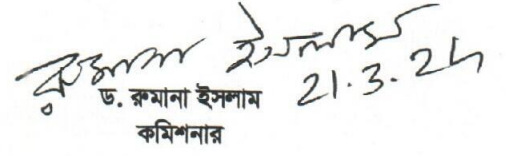 রুমানা ইসলাম
21.3.24
ড. রুমানা ইসলাম
কমিশনার